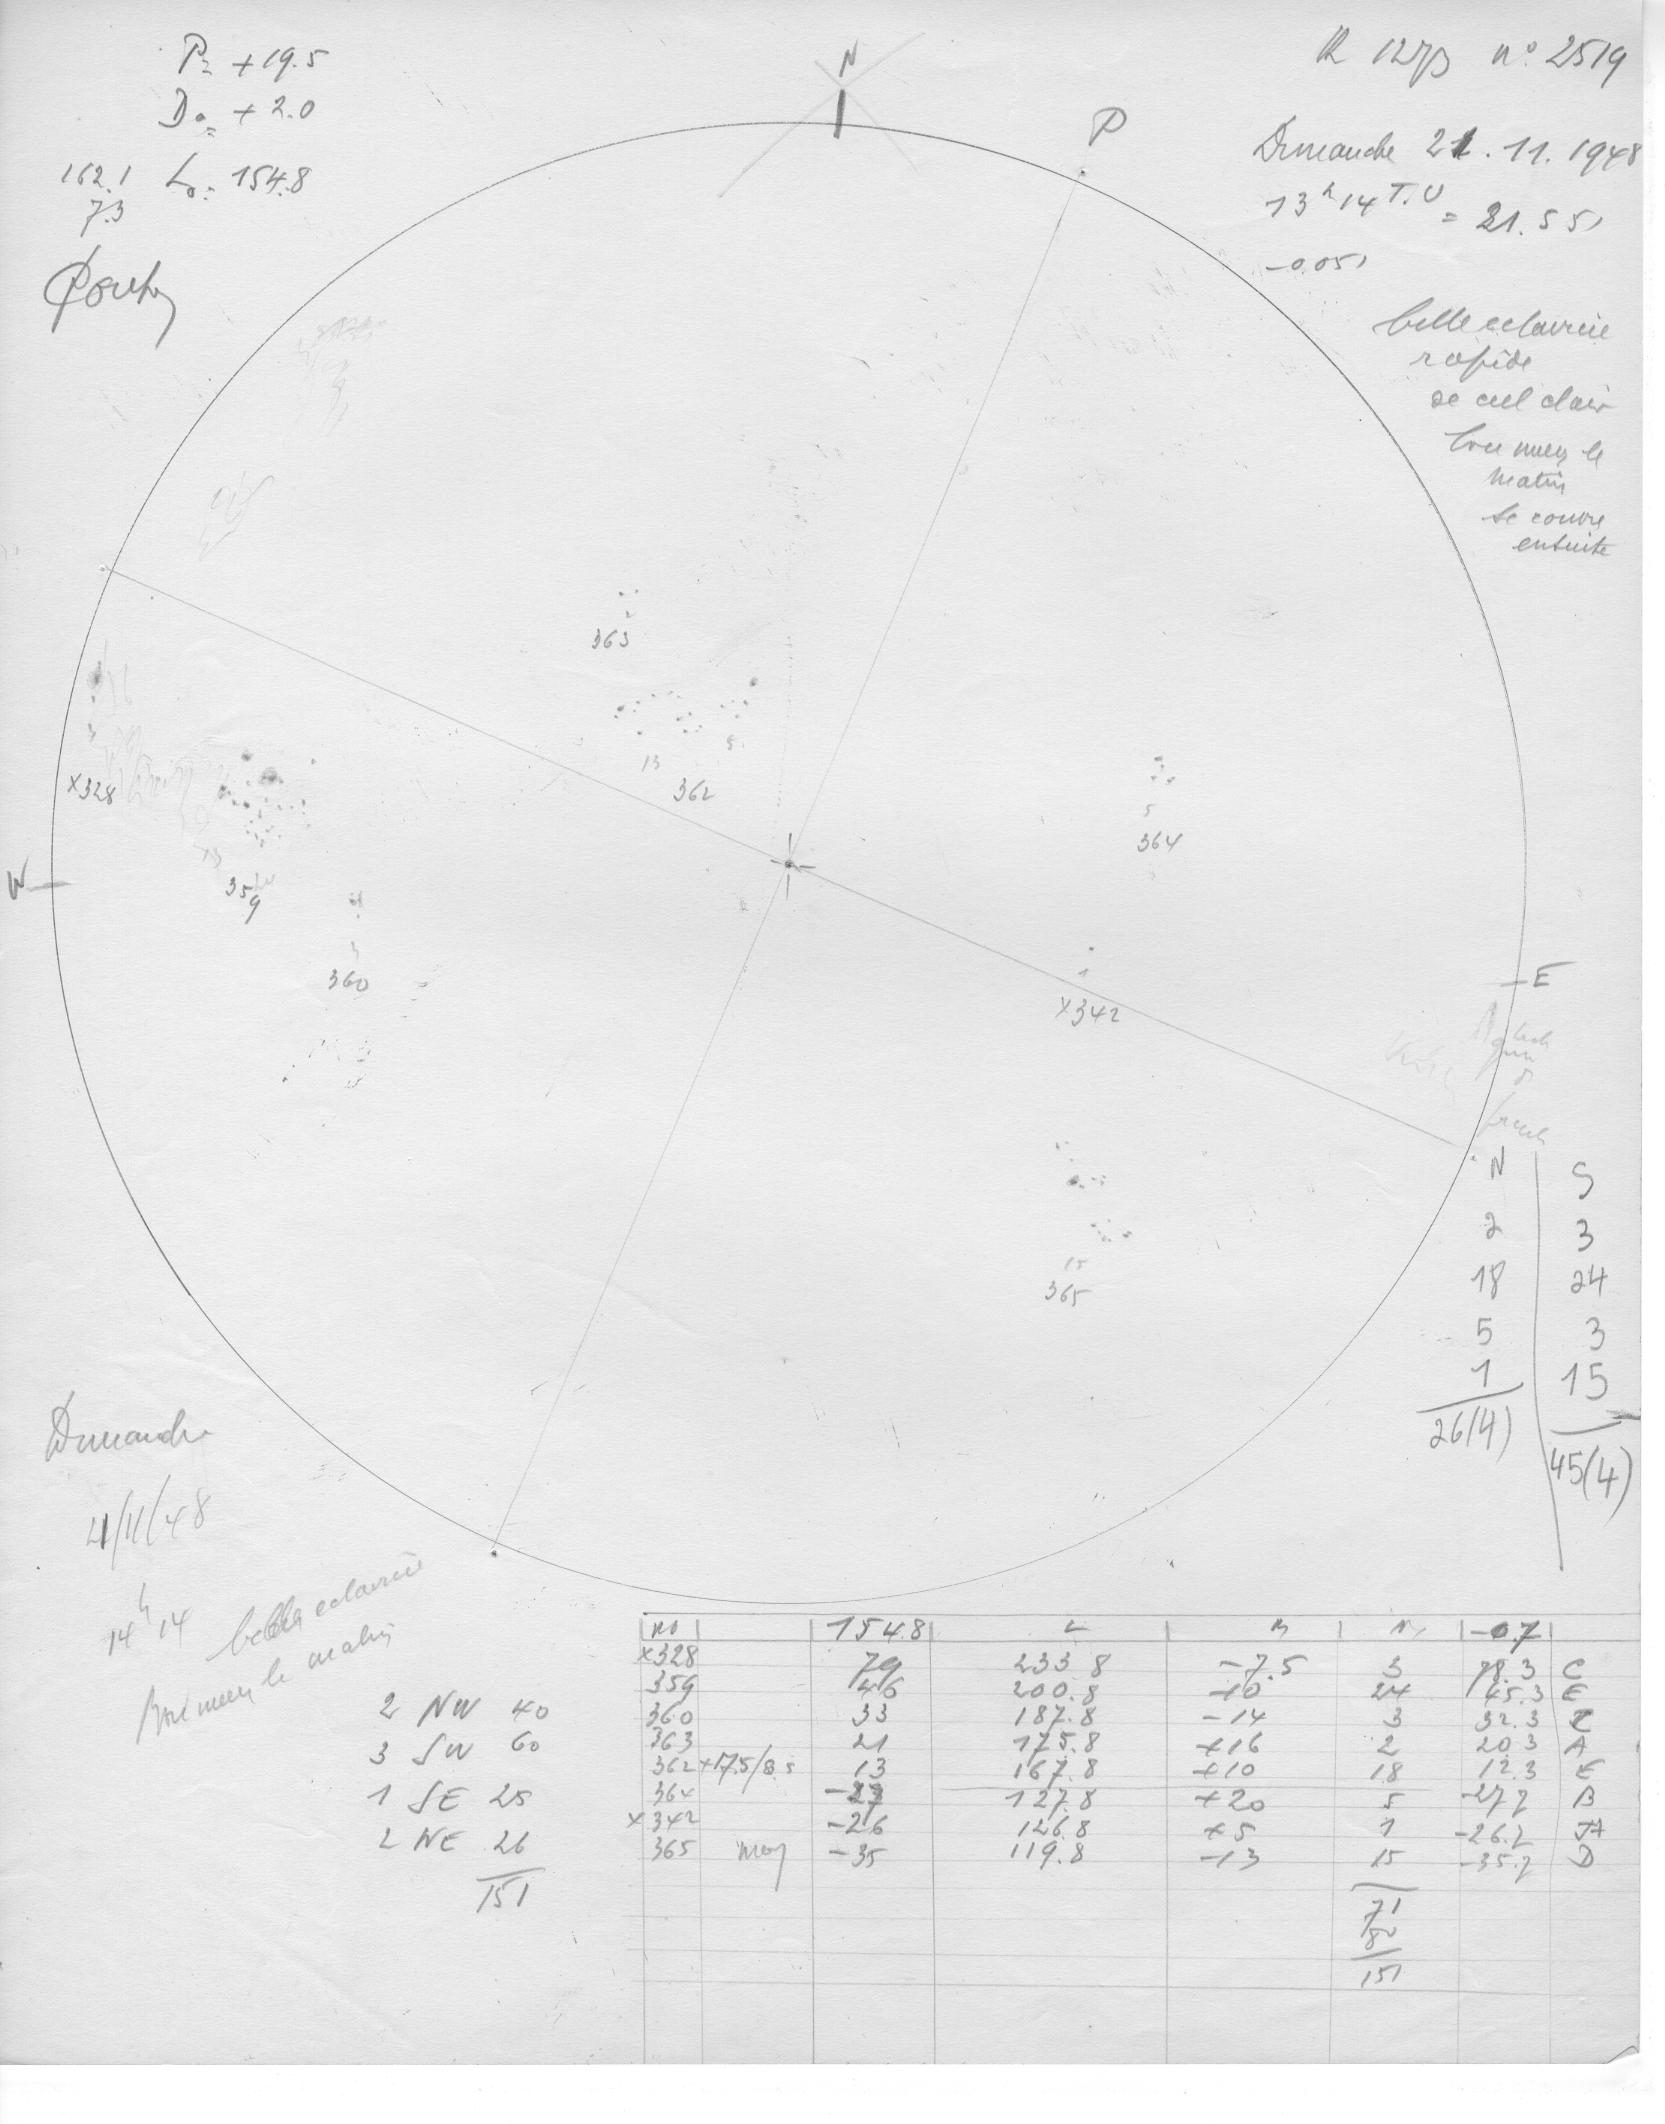 P= +19.5
Do= +2.0
162.1 Lo= 154.8
7.3
N
P
R 127β n° 2519
Dimanche 21.11.1948
13h14 T.U = 21.551
-0.051
belle eclaircie
rapide
de ciel clair
le
matin
se couvre
ensuite
363
2
13
5
362
3
x328
13
359
3
360
5
364
1
x342
15
365
W
E
N S
2 3
18 24
5 3
1 15
26(4) 45(4)
Dimanche
21/11/48
14h14
belle eclaircie
le matin
2 NW 40
3 SW 60
1 SE 25
2 NE 26
151
no 154.8 L B N -0.7
x328 79 233.8 -7.5 3 78.3 C
359 46 200.8 -10 24 45.3 E
360 33 187.8 -14 3 32.3 C
363 21 175.8 +16 2 20.3 A
362 +17.5/8.5 13 167.8 +10 18 12.3 E
364 -27 127.8 +20 5 -27.7 B
x342 -26 126.8 +5 1 -26.7 A
365 moy -35 119.8 -13 15 -35.7 D
71
80
151